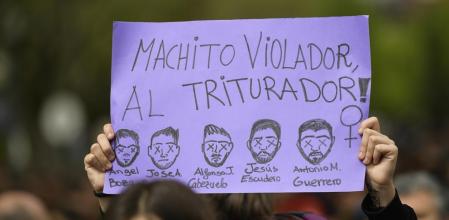 MACHITO VIOLADOR,
AL TRITURADOR!
Angel Jose A. Alfonso J. Jesús Antonio M.
Cabezuelo Escudero Guerrero